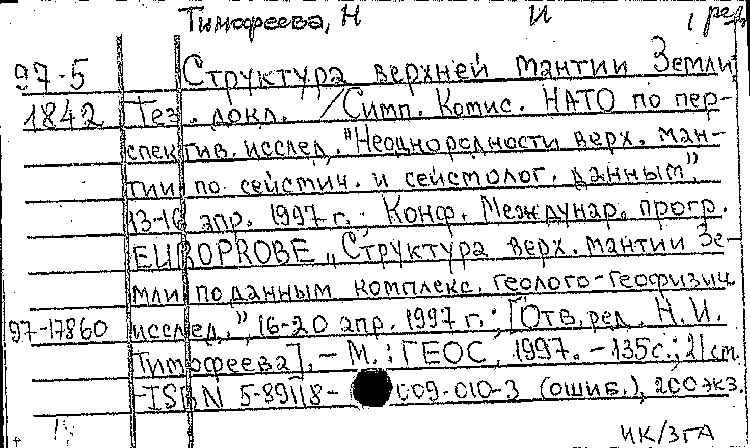 Тимофеева, Н И , ред.
97-5 Структура верхней мантии Земли
1842 Тез. докл. / Симп. Комис. НАТО по пер-
спектив. исслед. "Неоднородности верх. ман-
тии по сейсмич. и сейсмолог. данным",
13-16 апр. 1997 г.; Конф. Междунар. прогр.
EUROPROBE „Структура верх. мантии Зе-
мли по данным комплекс. геолого-геофизич.
97-17860 исслед.", 16-20 апр. 1997 г.; [Отв. ред. Н.И.
Тимофеева]. - М.: ГЕОС, 1997. - 135 с.; 21 см.
- ISBN 5-89118- 009-010-3 (ошиб.), 200 экз.
ИК/ЗГА